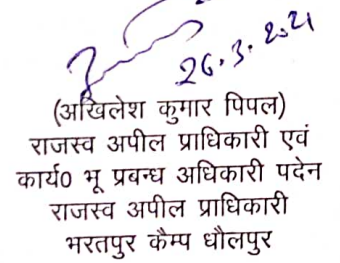 26.3.2021
(अखिलेश कुमार पिपल)
राजस्व अपील प्राधिकारी एवं
कार्य0 भू प्रबन्ध अधिकारी पदेन
राजस्व अपील प्राधिकारी
भरतपुर कैम्प धौलपुर